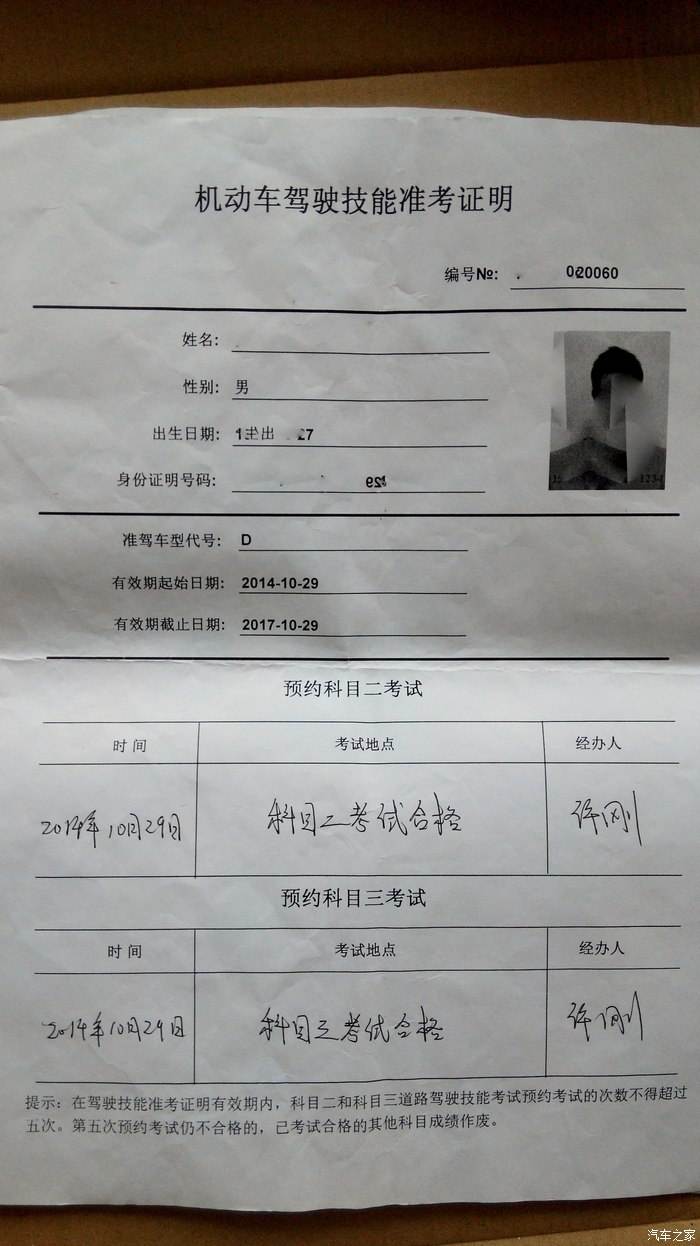 机动车驾驶技能准考证明
编号№: 020060
姓名:
性别: 男
出生日期: 27
身份证明号码:
1234
准驾车型代号: D
有效期起始日期: 2014-10-29
有效期截止日期: 2017-10-29
预约科目二考试
时间 考试地点 经办人
2014年10月29日 科目二考试合格 许刚
预约科目三考试
时间 考试地点 经办人
2014年10月29日 科目三考试合格 许刚
提示：在驾驶技能准考证明有效期内，科目二和科目三道路驾驶技能考试预约考试的次数不得超过
五次。第五次预约考试仍不合格的，已考试合格的其他科目成绩作废。
汽车之家